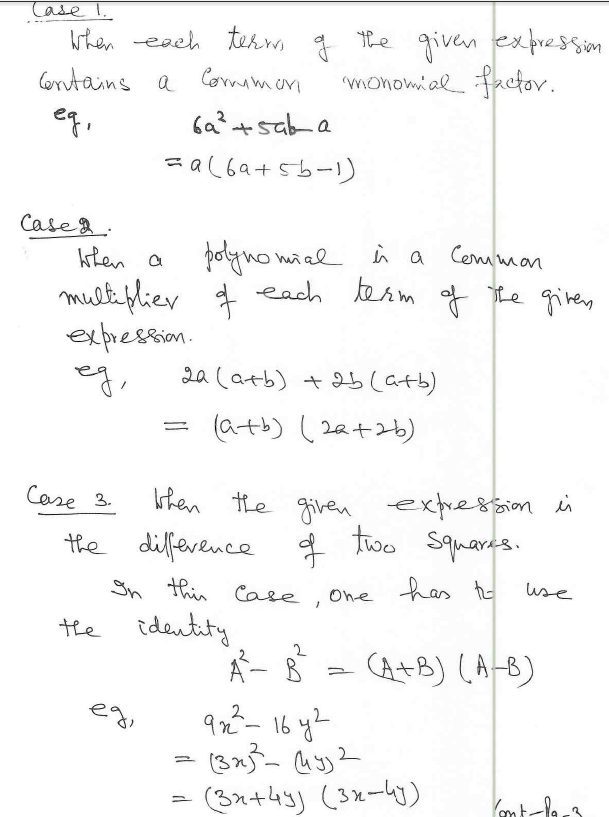 Case 1.
When each term of the given expression
Contains a Common monomial factor.
eg, 6a² + 5ab - a
= a(6a + 5b - 1)
Case 2.
When a polynomial is a Common
multiplier of each term of the given
expression.
eg, 2a(a+b) + 2b(a+b)
= (a+b) (2a+2b)
Case 3. When the given expression is
the difference of two Squares.
In this Case, one has to use
the identity
A² - B² = (A+B) (A-B)
eg, 9x² - 16y²
= (3x)² - (4y)²
= (3x+4y) (3x-4y)
Cont - Pg - 3